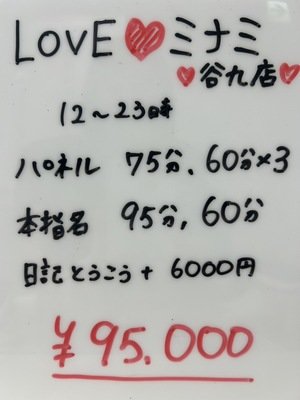 LOVE♥ミナミ
♥谷九店♥
12〜23時
パネル 75分、60分×3
本指名 95分、60分
日記とうこう + 6000円
¥95.000